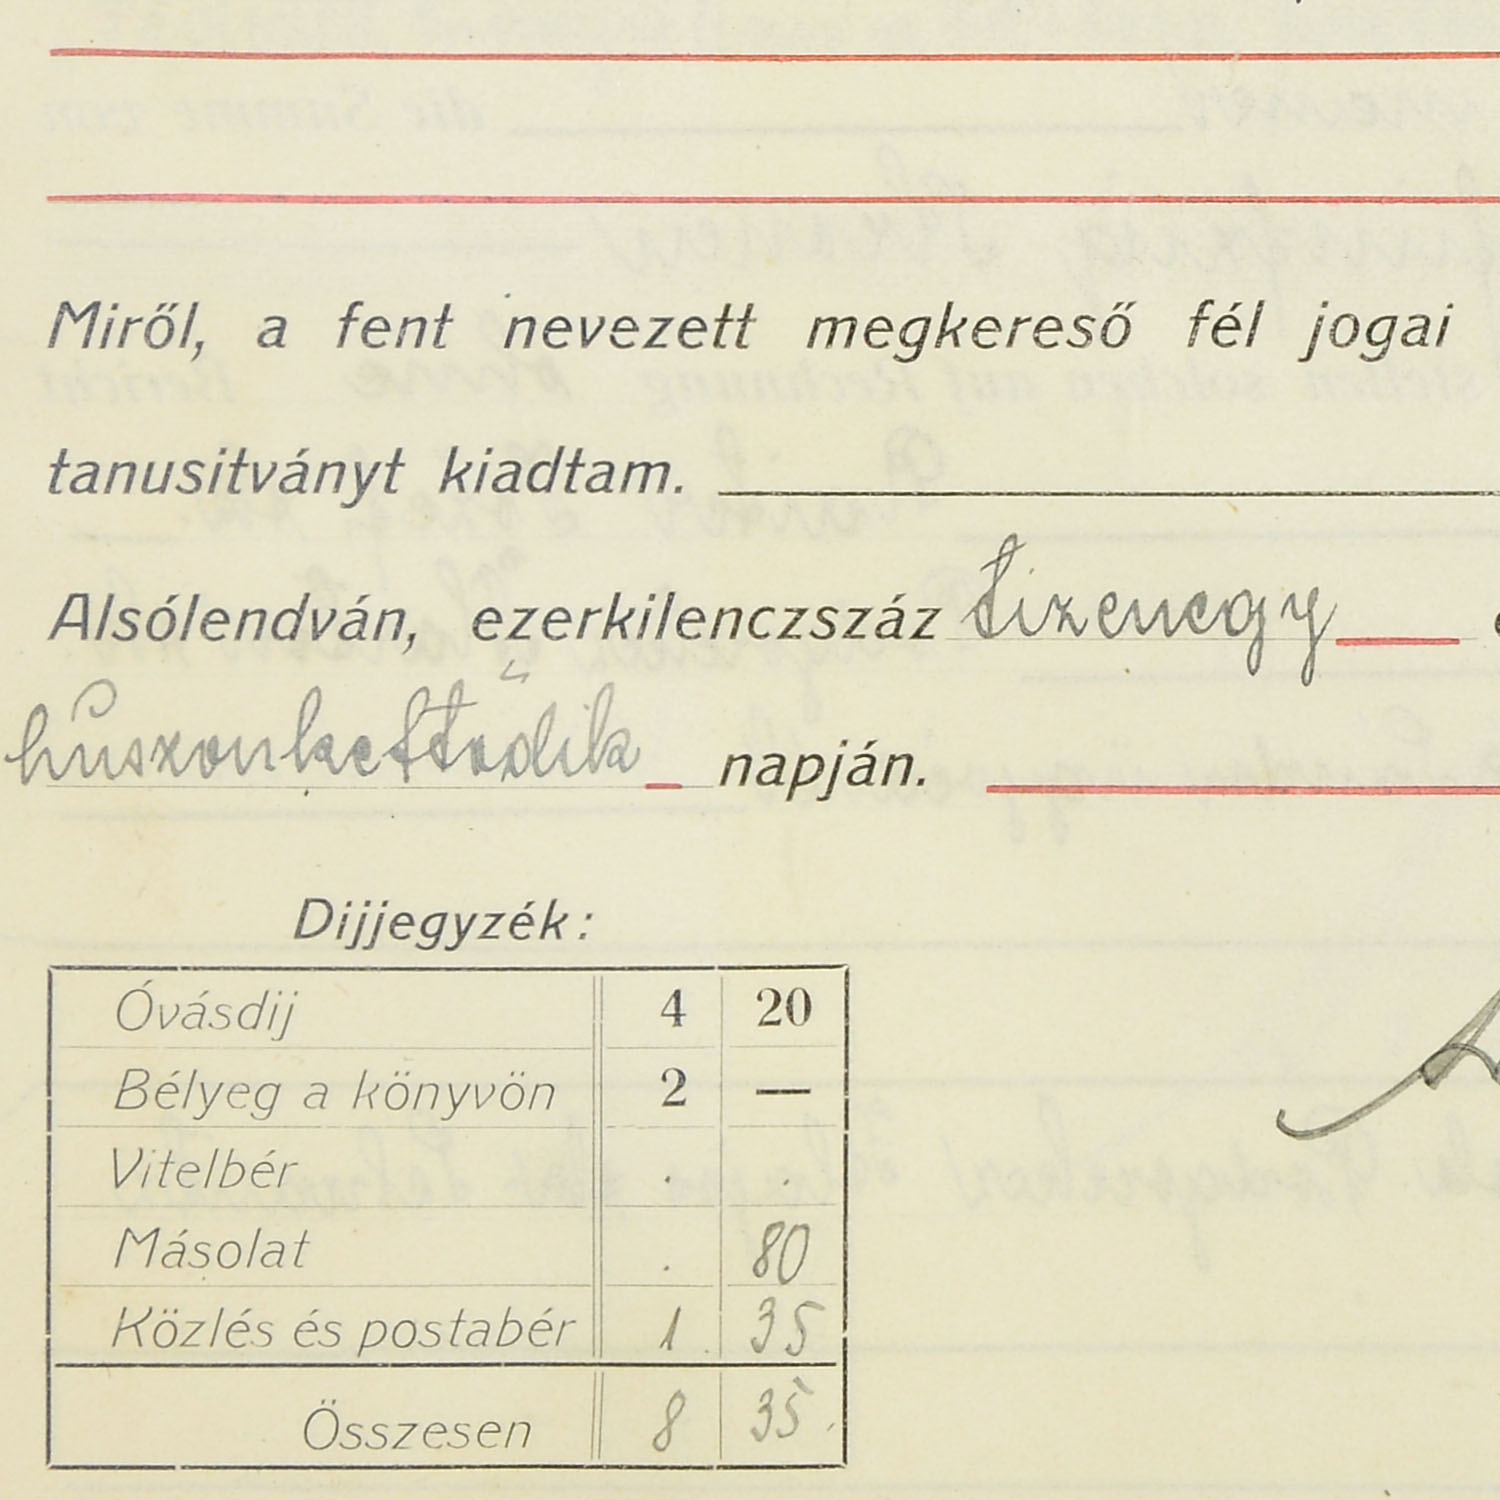 Miről, a fent nevezett megkereső fél jogai
tanusitványt kiadtam.
Alsólendván, ezerkilenczszáz tizenegy
huszonkettődik napján.
Dijjegyzék:
Óvásdij 4 20
Bélyeg a könyvön 2 —
Vitelbér . .
Másolat . 80
Közlés és postabér 1 35
Összesen 8 35